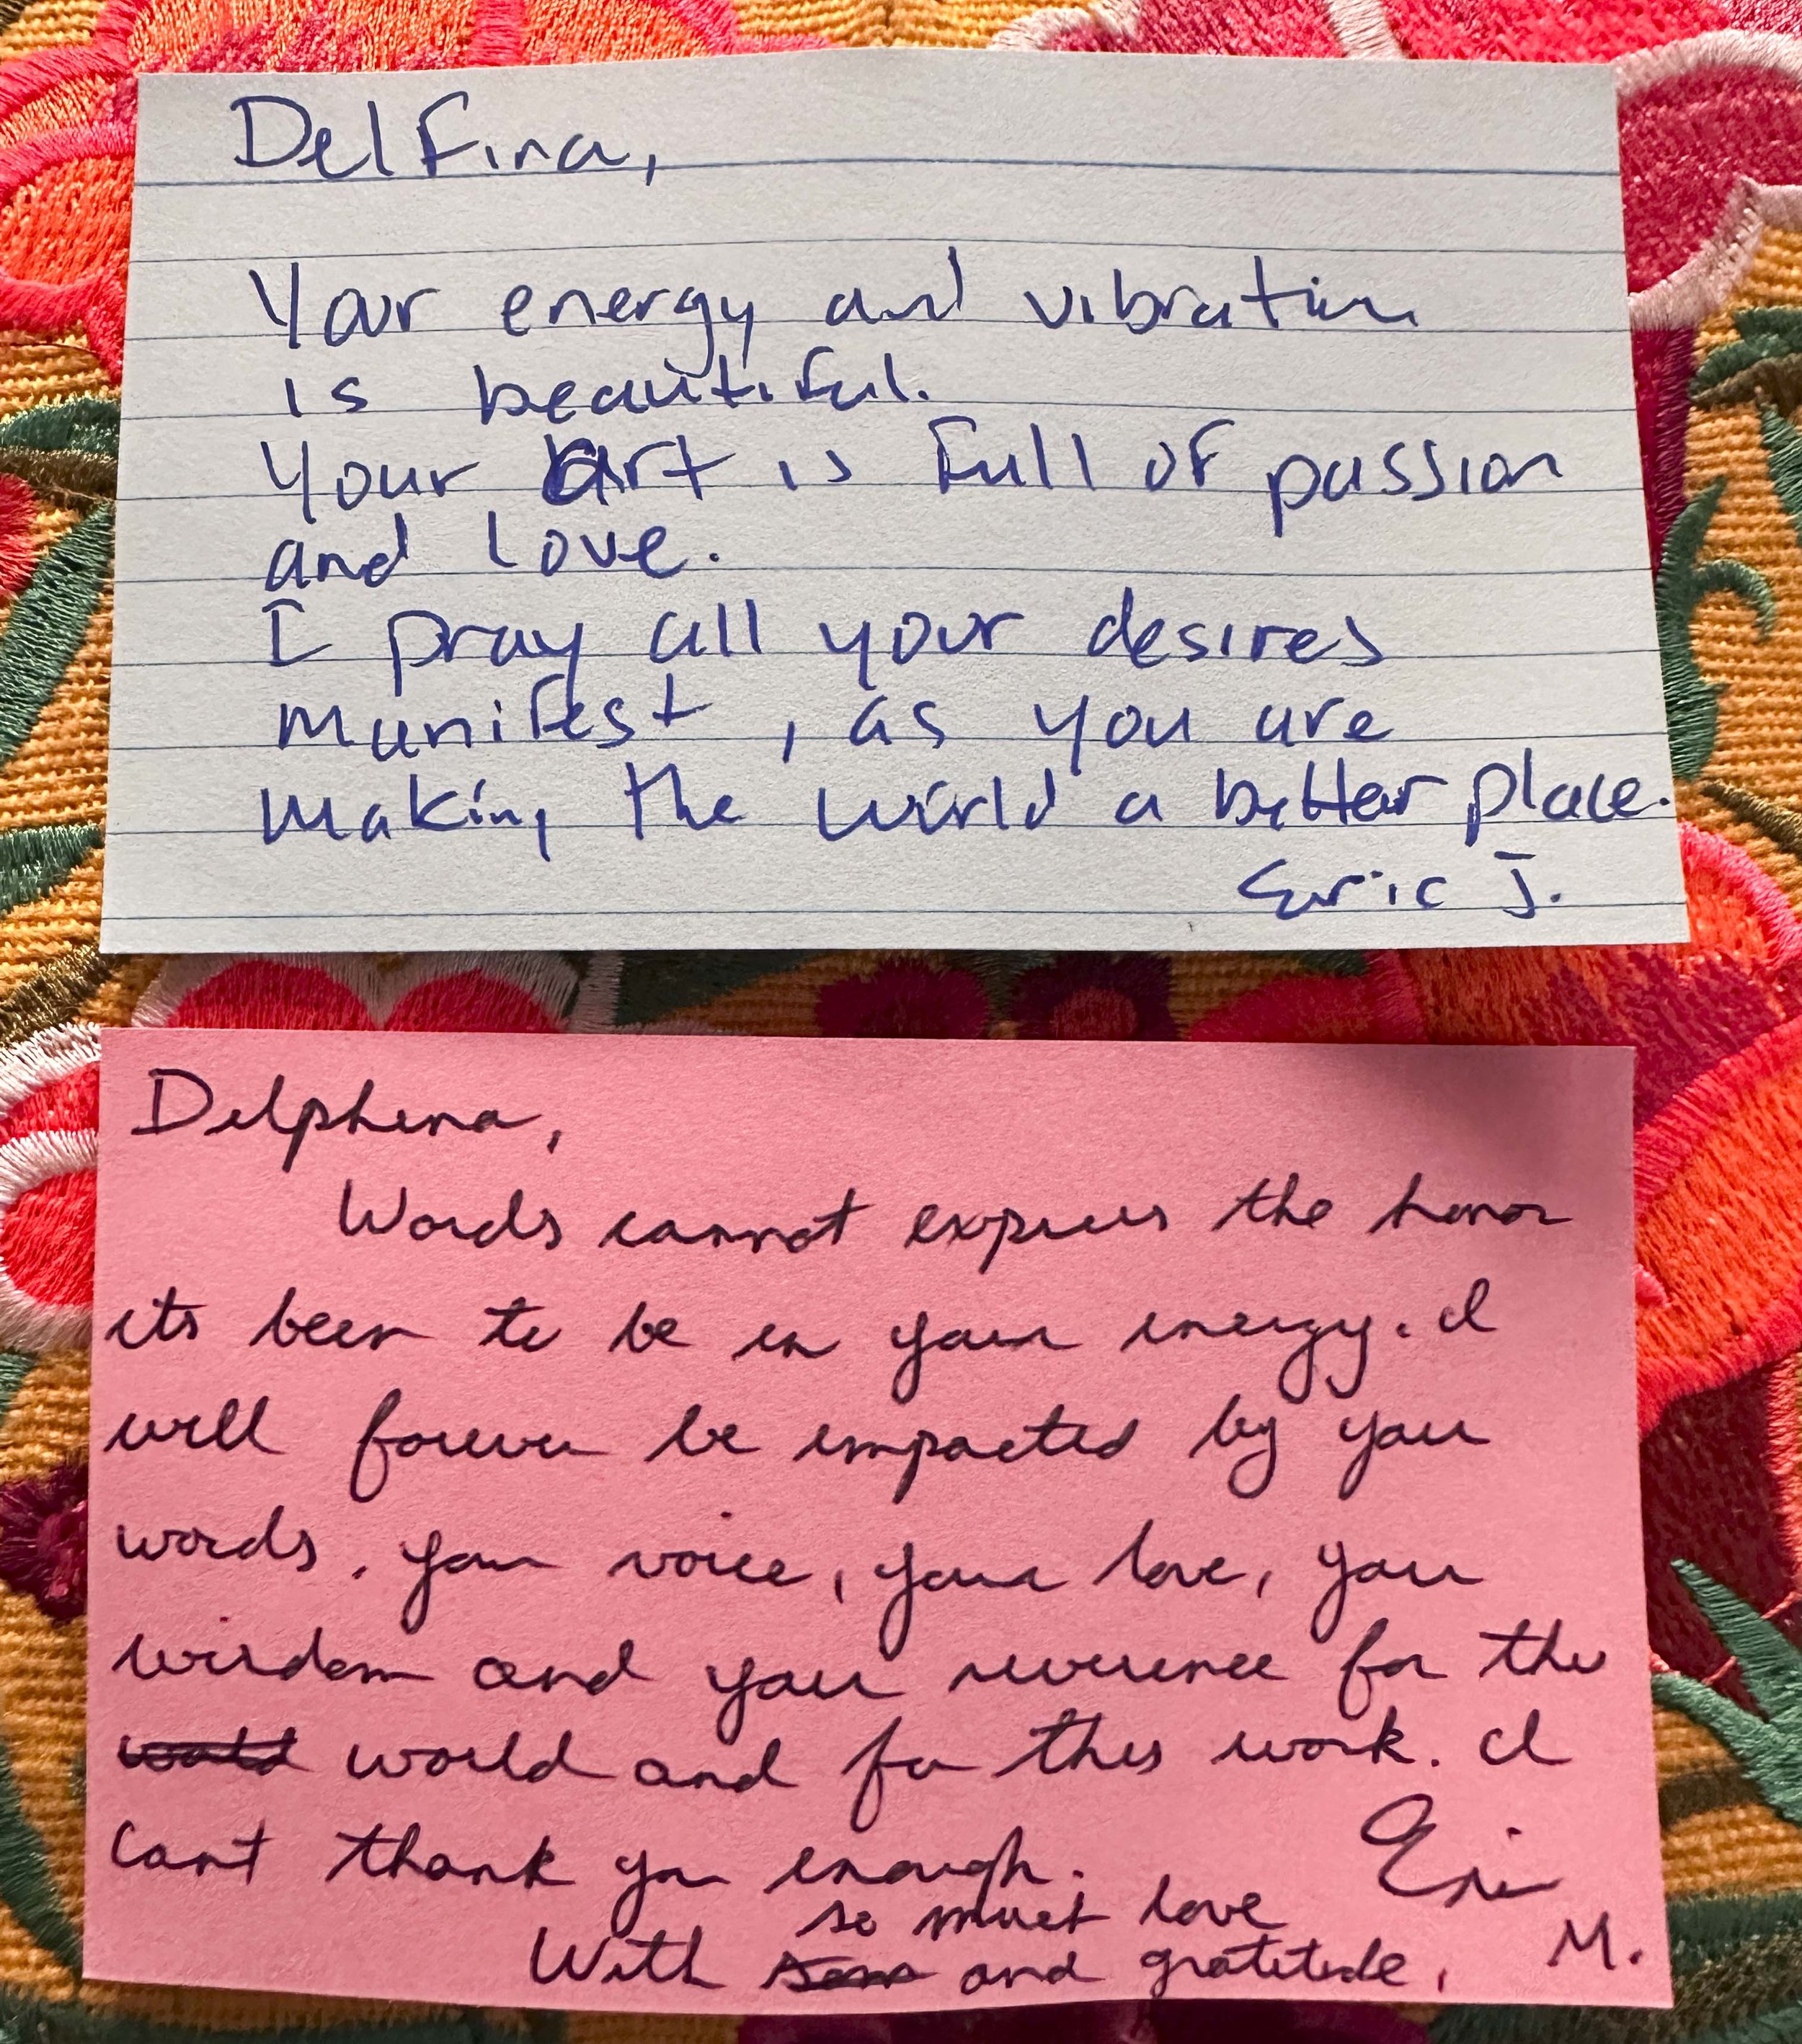 Delfina,
Your energy and vibration
is beautiful.
Your art is full of passion
and love.
I pray all your desires
manifest, as you are
making the world a better place.
Eric J.
Delphena,
Words cannot express the honor
its been to be in your energy. I
will forever be impacted by your
words, your voice, your love, your
wisdom and your reverence for the
world world and for this work. I
cant thank you enough.
so much love
With and gratitude,
Eric
M.